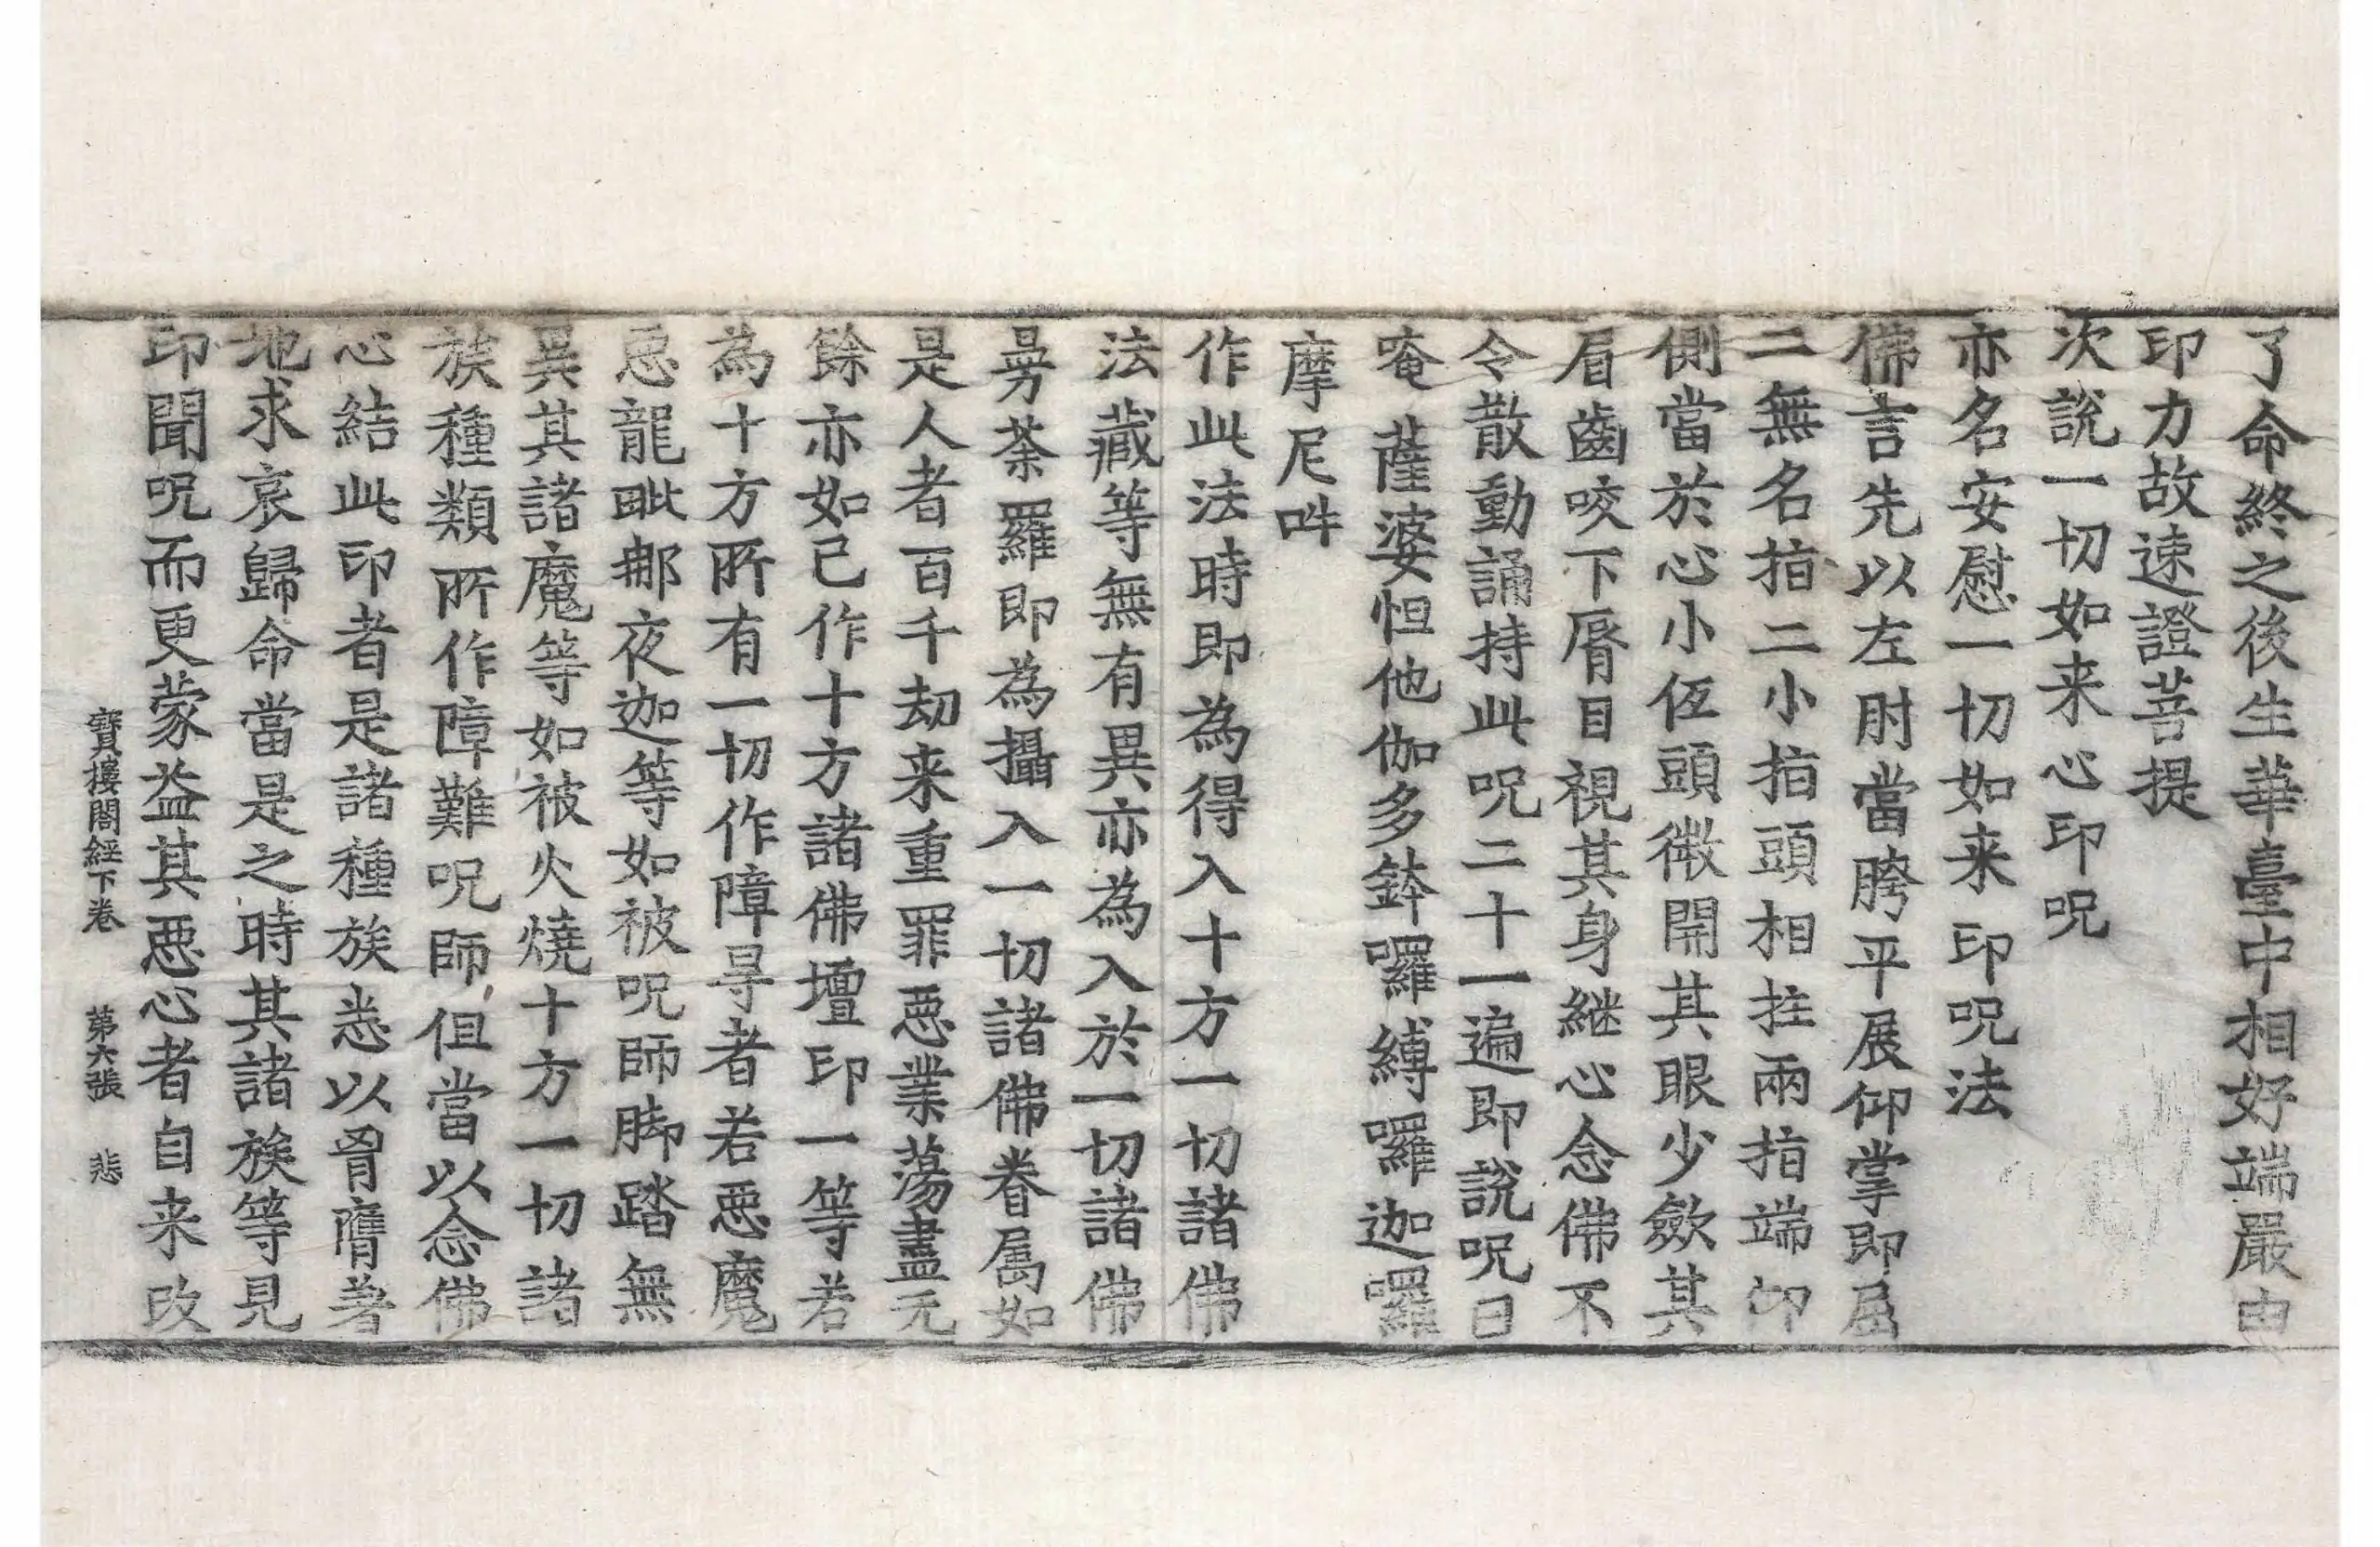 了命終之後生華臺中相好端嚴由
印力故速證菩提
次說一切如来心印呪
亦名安慰一切如来印呪法
佛言先以左肘當胯平展仰掌即屈
二無名指二小指頭相拄兩指端仰
側當於心小伍頭微開其眼少斂其
眉齒咬下脣目視其身継心念佛不
令散動誦持此呪二十一遍即說呪曰
唵薩婆怛他伽多鉢囉縛囉迦囉
摩尼吽
作此法時即為得入十方一切諸佛
法藏等無有異亦為入於一切諸佛
曼荼羅即為攝入一切諸佛眷属如
是人者百千劫来重罪惡業蕩盡无
餘亦如已作十方諸佛壇印一等若
為十方所有一切作障㝵者若惡魔
惡龍毗那夜迦等如被呪師脚踏無
異其諸魔等如被火燒十方一切諸
族種類所作障難呪師但當以念佛
心結此印者是諸種族悉以胷膺著
地求哀歸命當是之時其諸族等見
印聞呪而更蒙益其惡心者自来改
寶樓閣経下卷 第六張 悲